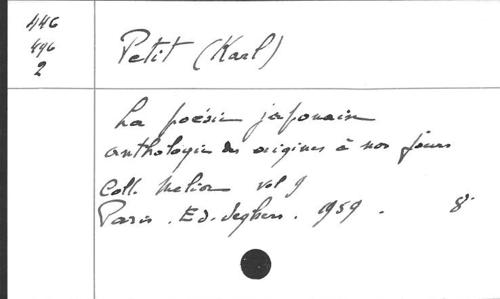 446
496
2
Petit (Karl)
La poésie japonaise
anthologie des origines à nos jours
Coll. Melior vol 9
Paris. Ed. Seghers. 1959. 8°